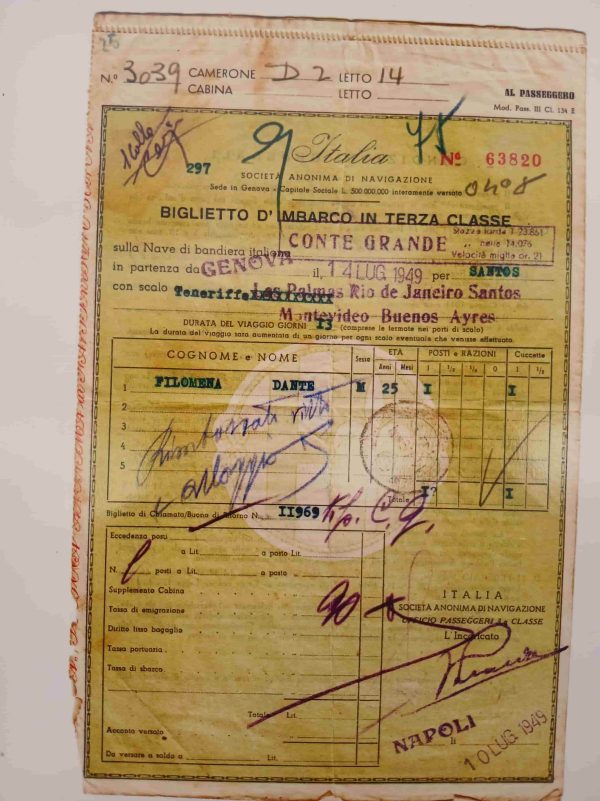 25
N.° 3039 CAMERONE D 2 LETTO 14
CABINA LETTO
AL PASSEGGERO
Mod. Pass. III Cl. 134 E
297
91 Italia 75 N° 63820
SOCIETÀ ANONIMA DI NAVIGAZIONE
Sede in Genova - Capitale Sociale L. 500.000.000 interamente versato
BIGLIETTO D'IMBARCO IN TERZA CLASSE
Stazza lorda T. 23.861
sulla Nave di bandiera italiana CONTE GRANDE " netta 14.076
Velocità miglia or. 21
in partenza da GENOVA il, 14 LUG 1949 per SANTOS
con scalo Teneriffe Las Palmas Rio de Janeiro Santos
Montevideo Buenos Ayres
DURATA DEL VIAGGIO GIORNI 13 (comprese le fermate nei porti di scalo)
La durata del viaggio sarà aumentata di un giorno per ogni scalo eventuale che venisse effettuato.
COGNOME e NOME Sesso ETÀ POSTI e RAZIONI Cuccette
Anni Mesi 1 ½ ¼ 0 1 ½
1 FILOMENA DANTE M 25 I I
2
3
4
5
Rimborsati vitto
alloggio
Totale I? I
Biglietto di Chiamata/Buono di Ritorno N. II969
Eccedenza posti
a Lit. a posto Lit.
N. posti a Lit. a posto
Supplemento Cabina
Tassa di emigrazione
Diritto fisso bagaglio
Tassa portuaria
Tassa di sbarco
90
ITALIA
SOCIETÀ ANONIMA DI NAVIGAZIONE
UFFICIO PASSEGGERI 3a CLASSE
L'Incaricato
Totale Lit.
Acconto versato
Da versare a saldo a Lit.
NAPOLI li 10 LUG 1949